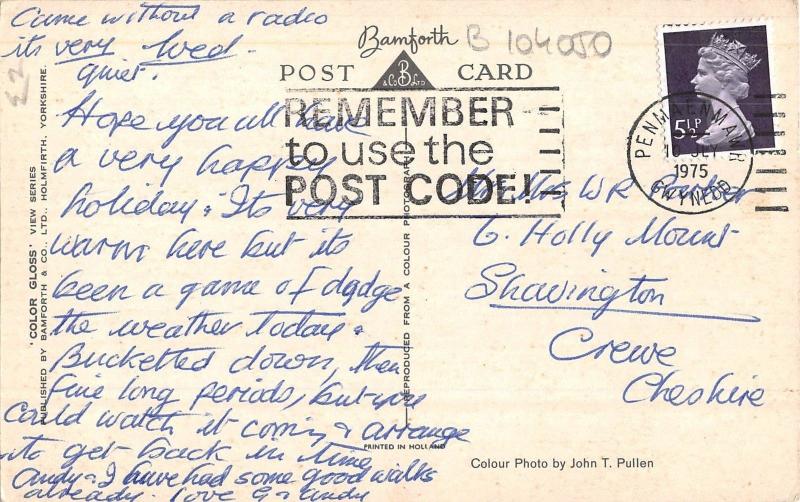 Came without a radio
its very Wed.
quiet.
Hope you all have
a very happy
holiday. Its very
warm here but its
been a game of dodge
the weather today.
Bucketted down, then
fine long periods, but
could watch it coming & arrange
to get back in time
Andy & I have had some good walks
already. Love G & Andy
£2
'COLOR GLOSS' VIEW SERIES
PUBLISHED BY BAMFORTH & CO., LTD., HOLMFIRTH, YORKSHIRE.
Bamforth
B 104050
POST CARD
B
& Co Ltd
REMEMBER
to use the
POST CODE!
REPRODUCED FROM A COLOUR PHOTOGRAPH
PRINTED IN HOLLAND
5½P
PENMAENMAWR
1975
GWYNEDD
Mr Mrs WR
6. Holly Mount
Shavington
Crewe
Cheshire
Colour Photo by John T. Pullen